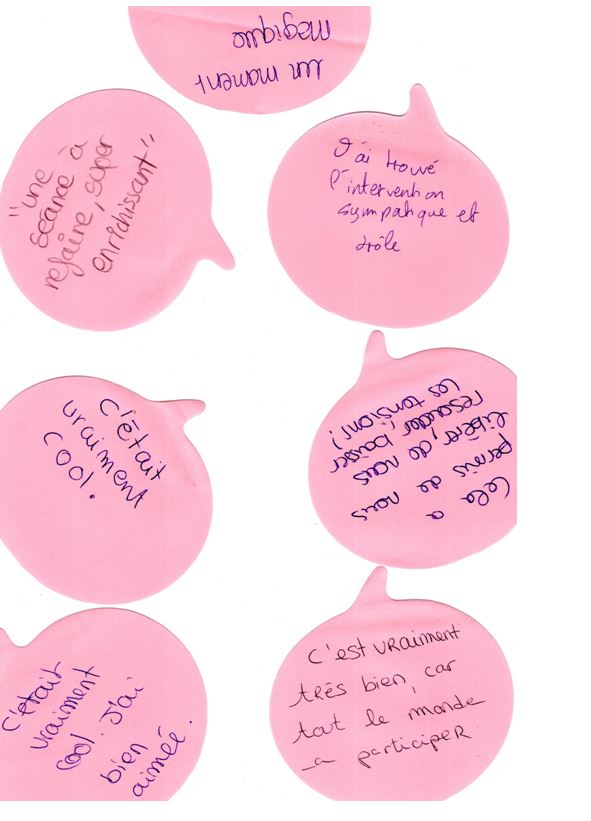 un moment
magique
"une
séance à
refaire, super
enrichissant"
J'ai trouvé
l'intervention
sympatique et
drôle
C'était
vraiment
cool.
Cela a
permis de nous
libère, de nous
resouder baisser
les tensions!
C'était
vraiment
cool. J'ai
bien
aimée.
C'est vraiment
très bien, car
tout le monde
a participer